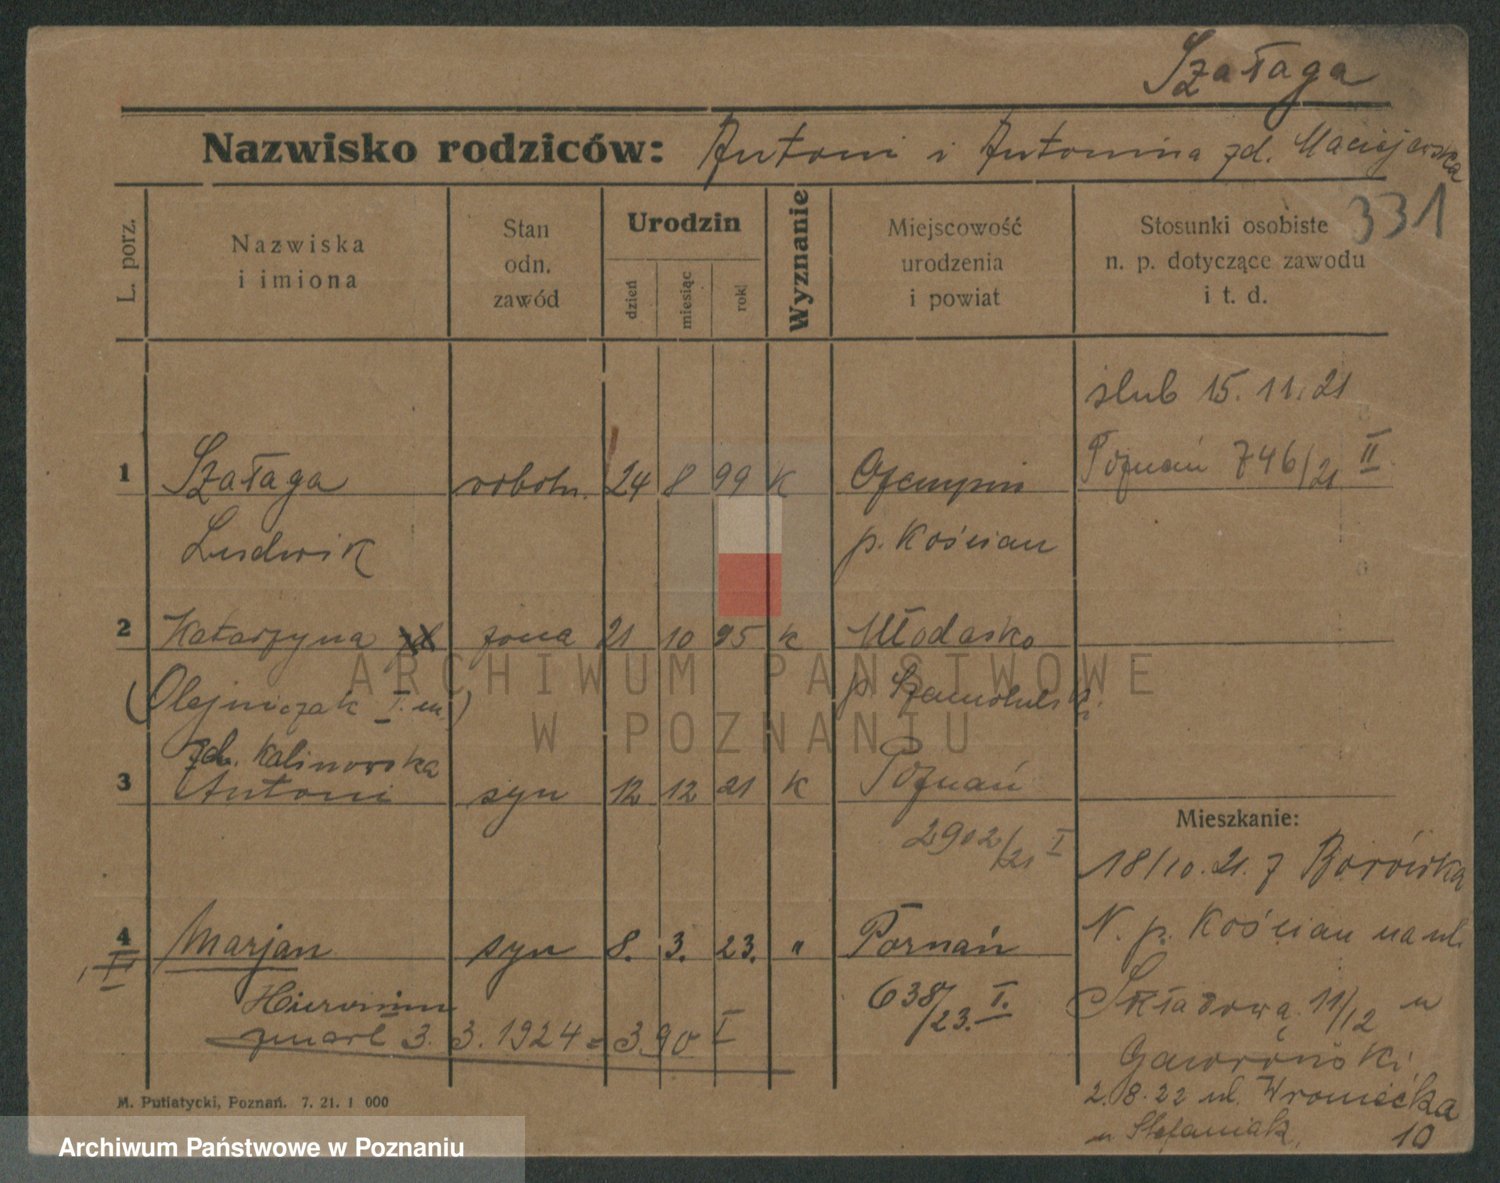 Szałaga
Nazwisko rodziców: Antoni i Antonina zd. Maciejewska
331
L. porz.
Nazwiska
i imiona
Stan
odn.
zawód
Urodzin
dzień
miesiąc
rok
Wyznanie
Miejscowość
urodzenia
i powiat
Stosunki osobiste
n. p. dotyczące zawodu
i t. d.
ślub 15. 11. 21
Poznań 746/21 II
1 Szałaga robotn. 24 8 99 K
Ludwik p. Kościan
2 Katarzyna zd żona 21 10 95 K Młodasko
(Olejniczak I. m.) p. Szamotulski
zd. Kalinowska
3 Antoni syn 12 12 21 K Poznań
2902/21 I
Mieszkanie:
18/10. 21. z Borówka
N. p. Kościan na ul.
4 Marjan syn 8. 3. 23. " Poznań
I
Hieronim 638/23. I.
zmarł 3. 3. 1924 = 390 I
Składową 11/12 u
Gaworński
2. 8. 22 ul. Wroniecka
u Stefaniak, 10
M. Putiatycki, Poznań. 7. 21. 1 000
ARCHIWUM PAŃSTWOWE
W POZNANIU
Archiwum Państwowe w Poznaniu